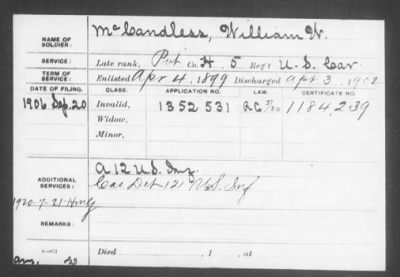 NAME OF SOLDIER: McCandless, William W.
SERVICE: Late rank, Pvt Co. H. 5 Reg't U.S. Cav
TERM OF SERVICE: Enlisted Apr 4, 1899 Discharged Apr 3, 1902
DATE OF FILING. CLASS. APPLICATION NO. LAW. CERTIFICATE NO.
1906 Sep. 20 Invalid, 1352 531 1184,239
Widow,
Minor,
ADDITIONAL SERVICES: A 12 U.S. Inf
Cas Det 12 U.S. Inf
1920-7-21
REMARKS:
Died , 1 , at